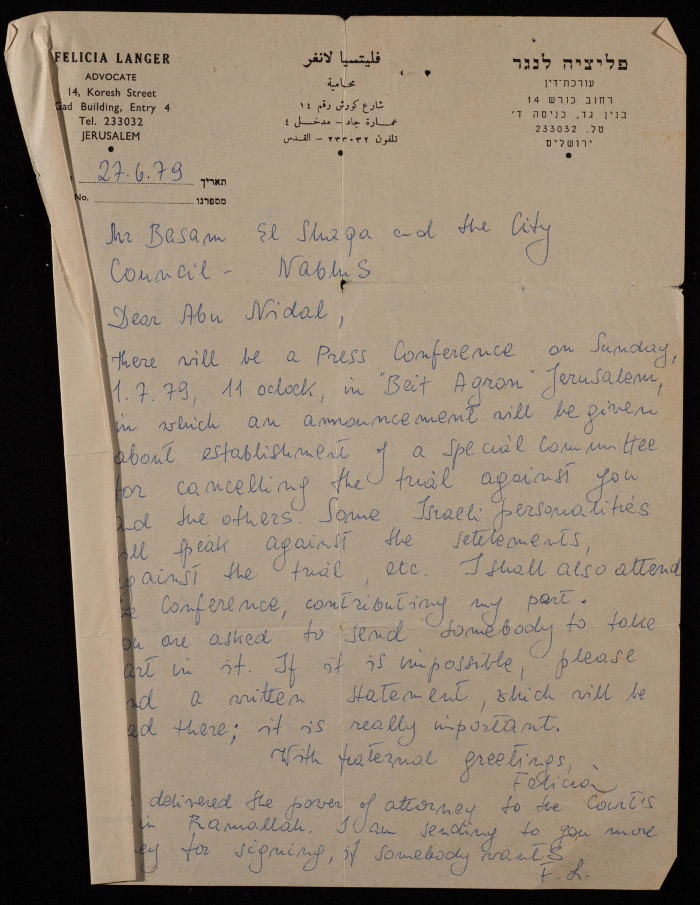 FELICIA LANGER
ADVOCATE
14, Koresh Street
Gad Building, Entry 4
Tel. 233032
JERUSALEM
فليتسيا لانغر
محامية
شارع كورش رقم ١٤
عمارة جاد - مدخل ٤
تلفون ٢٣٣٠٣٢ - القدس
פליציה לנגר
עורכת-דין
רחוב כורש 14
בנין גד, כניסה ד'
טל. 233032
ירושלים
27.6.79 תאריך
No. מספרנו
Mr Basam El Shaqa and the City
Council - Nablus
Dear Abu Nidal,
there will be a Press Conference on Sunday,
1.7.79, 11 oclock, in "Beit Agron" Jerusalem,
in which an announcement will be given
about establishment of a special committee
for cancelling the trial against you
and the others. Some Israeli personalities
ll speak against the setelements,
gainst the trial, etc. I shall also attend
e Conference, contributing my part.
ou are asked to send somebody to take
art in it. If it is impossible, please
nd a written statement, which will be
ad there; it is really important.
With fraternal greetings,
Felicia
delivered the power of attorney to the Courts
in Ramallah. I am sending to you more
ey for signing, if somebody wants
F. L.